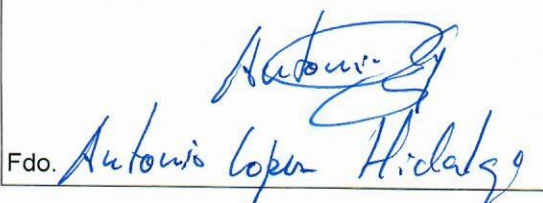 Antonio
Fdo. Antonio Lopez Hidalgo